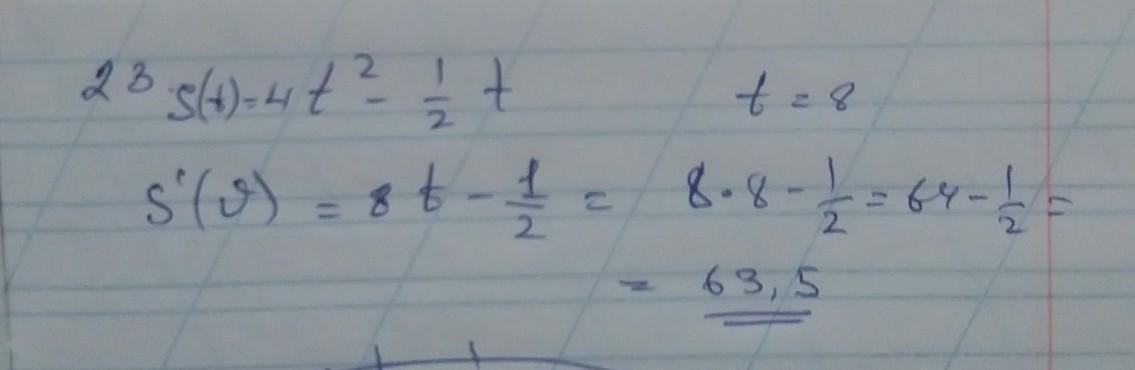 23 S(t)=4t² - 1/2 t t = 8
S'(ϑ) = 8t - 1/2 = 8·8 - 1/2 = 64 - 1/2 =
= 63,5